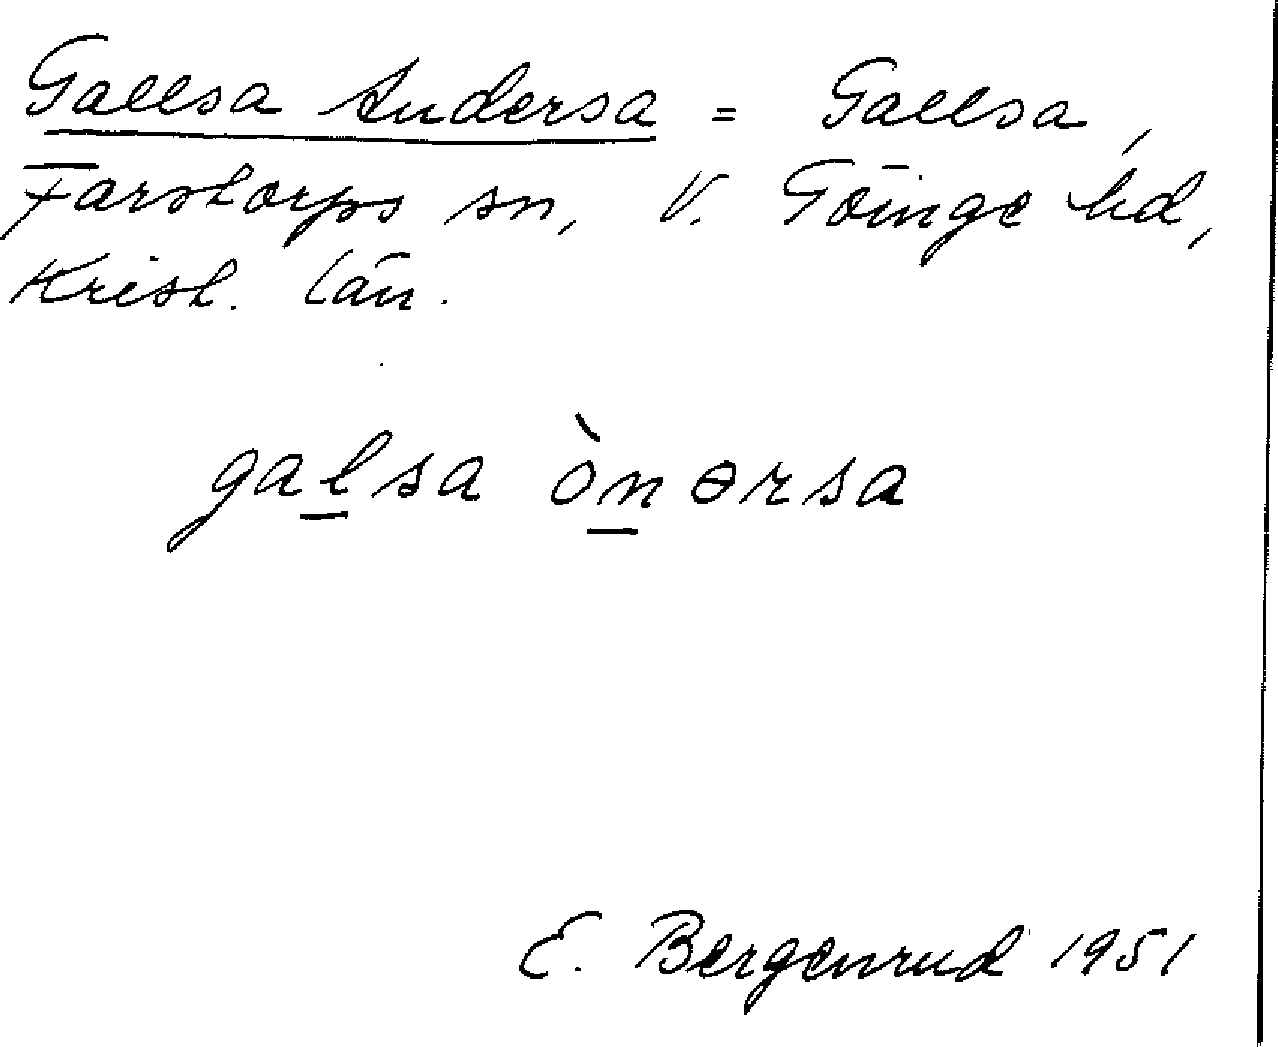 Gallsa Andersa = Gallsa,
Farstorps sn, V. Göinge hd,
Krist. län.
gal̲sa òn̲ərsa
E. Bergenrud 1951